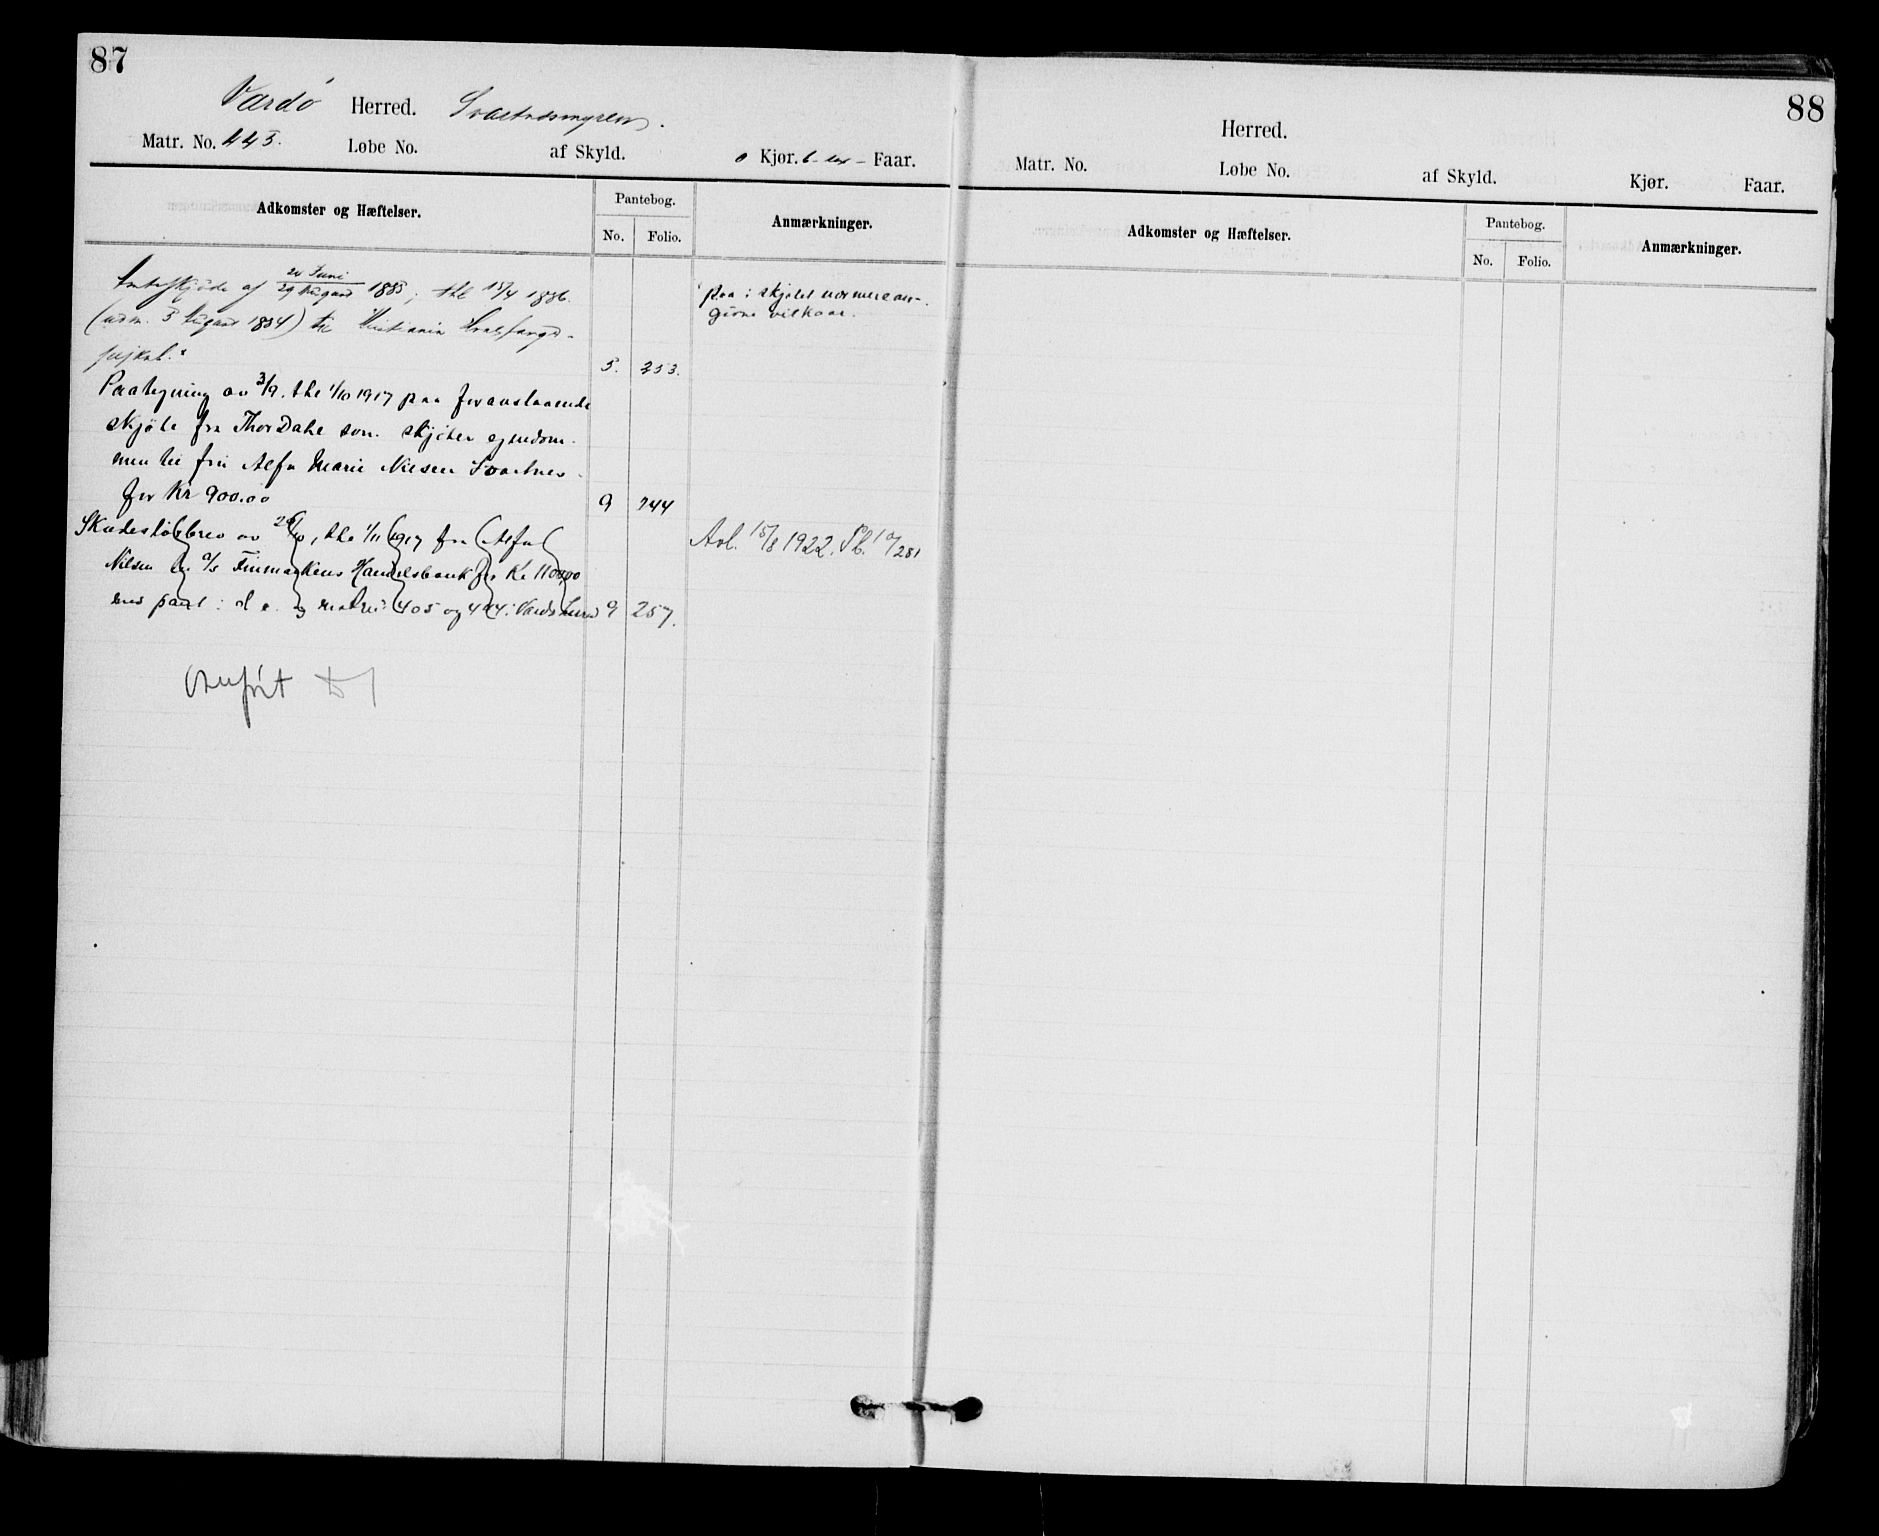 87
Vardö Herred. Svartnæsmyren.
Matr. No. 445. Løbe No. af Skyld. o Kjør. 6 - sex - Faar.
Adkomster og Hæftelser. Pantebog. Anmærkninger.
No. Folio.
af 20 Juni / 29 August 1885, thl 15/4 1886.
(udm. 5 August 1884) til Kristiania Hvalfangst-
5. 253.
paa i skjøtet nærmere an-
givne vilkaar.
Paategning av 3/9. thl 1/10 1917 paa foranstaaende
skjöte fra Thor Dahl som skjöter eiendom-
men til fru Alfa Marie Nilsen Svartnes
for Kr 900.00 9 244
Skadesløsbrev av 26/10, thl 1/11 1917 fra Alfa
Nilsen til A/S Finmarkens Handelsbank for Kr 11000,00
med pant i d. e. og matr. nr. 405 og 444 i Vardö herred 9 257.
Avl. 15/8 1922. Pb. 10/281
Overfört
88
Herred.
Matr. No. Løbe No. af Skyld. Kjør. Faar.
Adkomster og Hæftelser. Pantebog. Anmærkninger.
No. Folio.